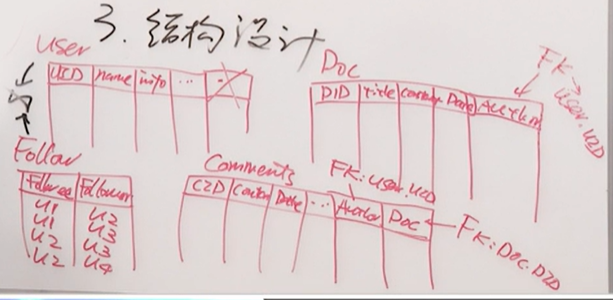 3. 结构设计
User
UID name info ...
Doc
DID Title Content Date Author
FK→
User.UID
Follow
Followee Follower
U1 U2
U1 U3
U2 U3
U2 U4
Comments
CID Content Date ... Author Doc
FK:User.UID
FK:Doc.DID